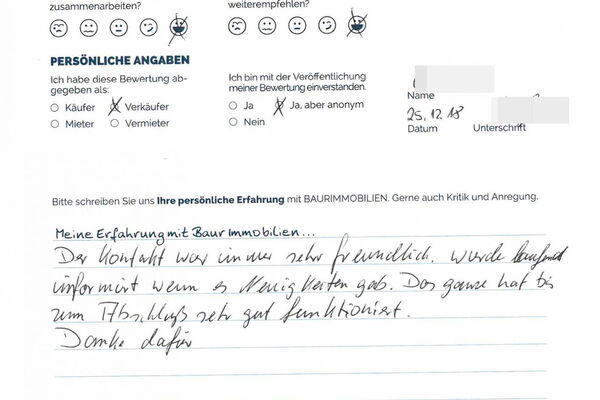 zusammenarbeiten?
weiterempfehlen?
PERSÖNLICHE ANGABEN
Ich habe diese Bewertung ab-
gegeben als:
Käufer Verkäufer
Mieter Vermieter
Ich bin mit der Veröffentlichung
meiner Bewertung einverstanden.
Ja Ja, aber anonym
Nein
Name
25.12.18
Datum Unterschrift
Bitte schreiben Sie uns Ihre persönliche Erfahrung mit BAURIMMOBILIEN. Gerne auch Kritik und Anregung.
Meine Erfahrung mit Baur Immobilien...
Der Kontakt war immer sehr freundlich. Wurde laufend
informiert wenn es Neuigkeiten gab. Das ganze hat bis
zum Abschluß sehr gut funktioniert.
Danke dafür